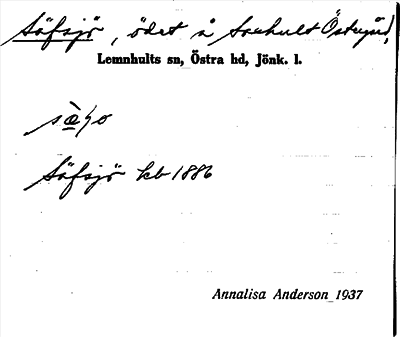 Säfsjö, ödet å Souhult Östergård,
Lemnhults sn, Östra hd, Jönk. l.
Säfsjö kb 1886
Annalisa Anderson 1937